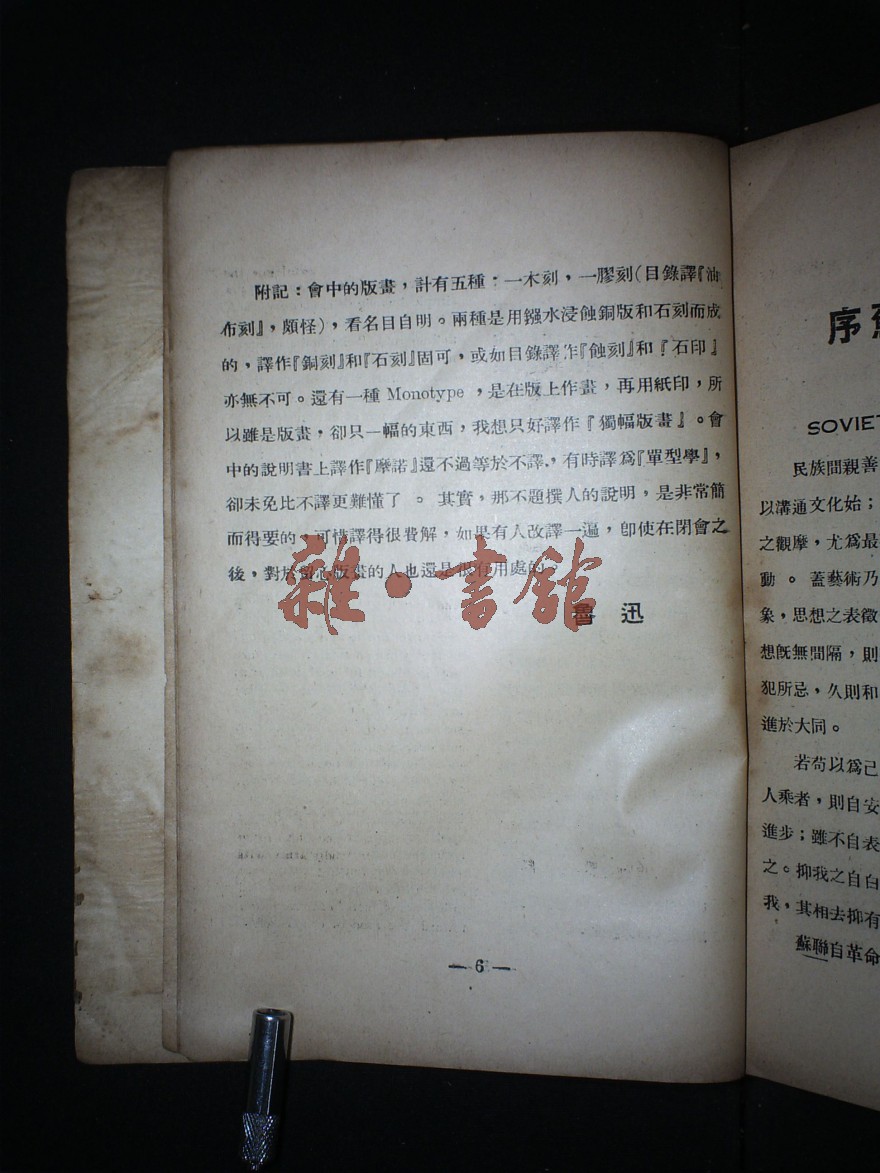 附記：會中的版畫，計有五種：一木刻，一膠刻（目錄譯『油
布刻』，頗怪），看名目自明。兩種是用鏹水浸蝕銅版和石刻而成
的，譯作『銅刻』和『石刻』固可，或如目錄譯作『蝕刻』和『石印』
亦無不可。還有一種 Monotype，是在版上作畫，再用紙印，所
以雖是版畫，卻只一幅的東西，我想只好譯作『獨幅版畫』。會
中的說明書上譯作『摩諾』還不過等於不譯，有時譯爲『單型學』，
卻未免比不譯更難懂了。其實，那不題撰人的說明，是非常簡
而得要的，可惜譯得很費解，如果有人改譯一遍，卽使在閉會之
後，對於留心版畫的人也還是很有用處的。
魯迅
雜·書館
— 6 —
序
SOVIET
民族間親善
以溝通文化始；
之觀摩，尤爲最
動。蓋藝術乃
象，思想之表徵
想旣無間隔，則
犯所忌，久則和
進於大同。
若苟以爲己
人乘者，則自安
進步；雖不自表
之。抑我之自白
我，其相去抑有
蘇聯自革命